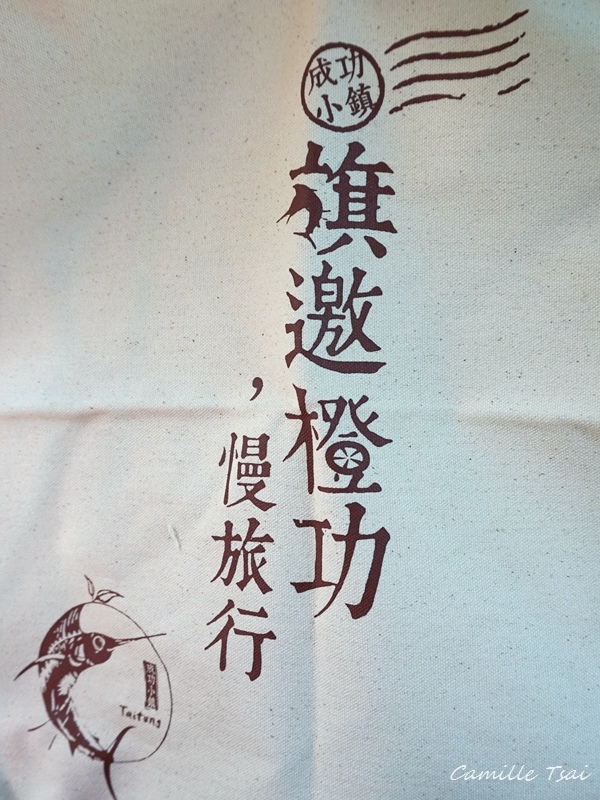 成功
小鎮
旗邀橙功
，慢旅行
成功小鎮
Taitung
Camille Tsai